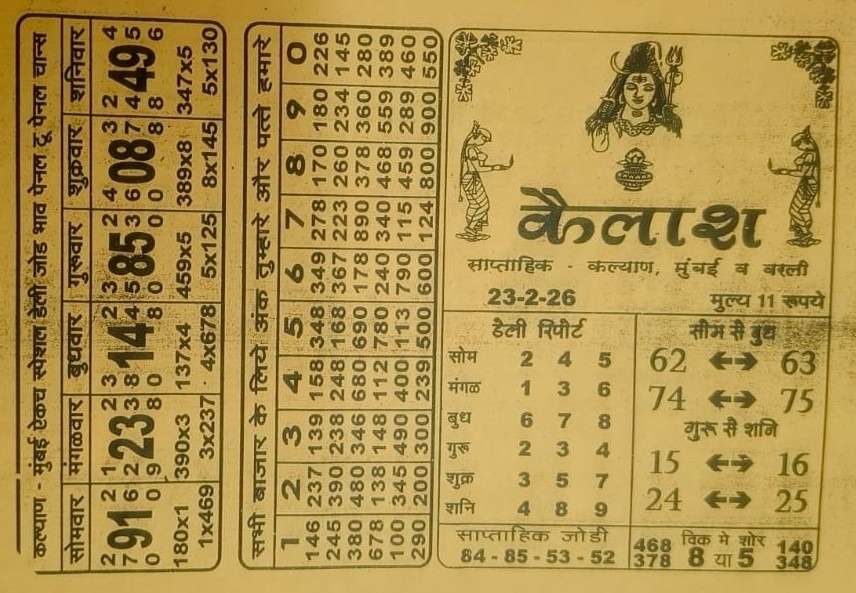 कल्याण - मुंबई ऐकच स्पेशल डेली जोड भाव पेनल टू पेनल चान्स
सोमवार मंगळवार बुधवार गुरूवार शुक्रवार शनिवार
2 2 1 2 3 2 3 2 4 3 2 4
7 91 6 2 23 8 8 14 4 5 85 3 6 08 7 4 49 5
0 0 9 8 0 8 0 0 0 8 8 6
180x1 390x3 137x4 459x5 389x8 347x5
1x469 3x237 4x678 5x125 8x145 5x130
सभी बाजार के लिये अंक तुम्हारे और पत्ते हमारे
1 2 3 4 5 6 7 8 9 0
146 237 139 158 348 349 278 170 180 226
245 390 238 248 168 367 223 260 234 145
380 480 346 680 690 178 890 378 360 280
678 138 148 112 780 240 340 468 559 389
100 345 490 400 113 790 115 459 289 460
290 200 300 239 500 600 124 800 900 550
कैलाश
साप्ताहिक - कल्याण, मुंबई व वरली
23-2-26 मुल्य 11 रूपये
डैली रिपोर्ट
सोम 2 4 5
मंगळ 1 3 6
बुध 6 7 8
गुरू 2 3 4
शुक्र 3 5 7
शनि 4 8 9
साप्ताहिक जोडी
84 - 85 - 53 - 52
सोम सै बुध
62 ↔ 63
74 ↔ 75
गुरू सै शनि
15 ↔ 16
24 ↔ 25
468 विक मे शोर 140
378 8 या 5 348